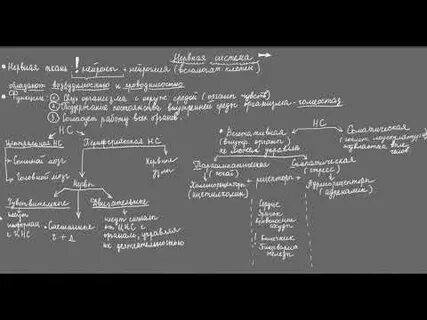 Нервная система
• Нервная ткань ! нейроны + нейроглия (вспомогат. клетки)
обладают возбудимостью и проводимостью
• Функции: ① Связь организма с окруж. средой (органы чувств)
② Поддержание постоянства внутренней среды организма - гомеостаз
③ Согласует работу всех органов.
НС
НС
Центральная НС
Периферическая НС
Вегетативная
(внутр. органы)
не можем управлять
Соматическая
• Спинной мозг
• Головной мозг
Нервные
узлы
Нервы
Парасимпатическая
(покой)
Симпатическая
(стресс)
Холинорецепторы
(ацетилхолин)
рецепторы
Адренорецепторы
(адреналин)
Чувствительные
Двигательные
несут
информ.
с ЦНС
• Смешанные
Ч + Д
несут сигнал
от ЦНС к
органам, управляя
их деятельностью
Сердце
кровеносные
сосуды
! Кишечник
Пищеварит.
железы